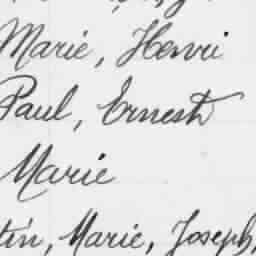 Marie, Henri
Paul, Ernest
Marie
tin, Marie, Joseph,